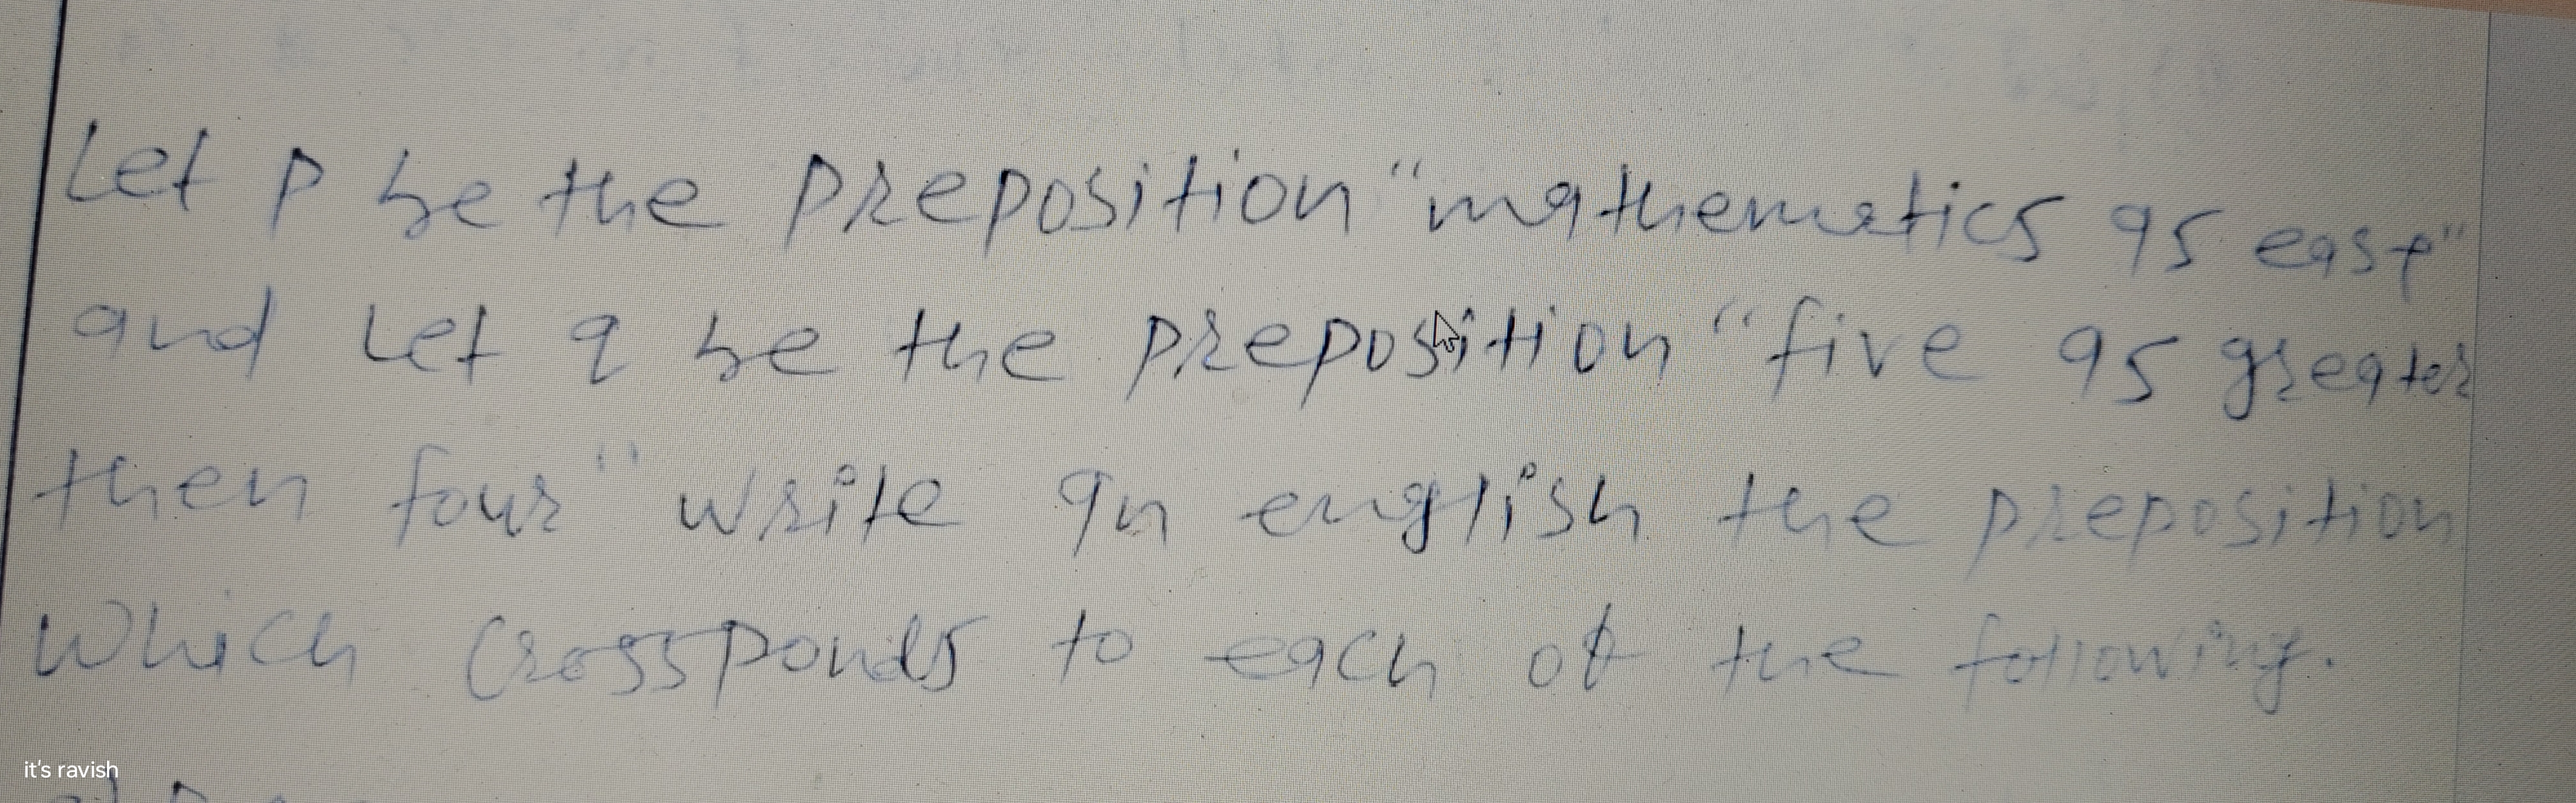 Let p be the preposition "mathematics is easy"
and Let q be the preposition "five is greater
then four" write in english the preposition
which crossponds to each of the following.
it's ravish